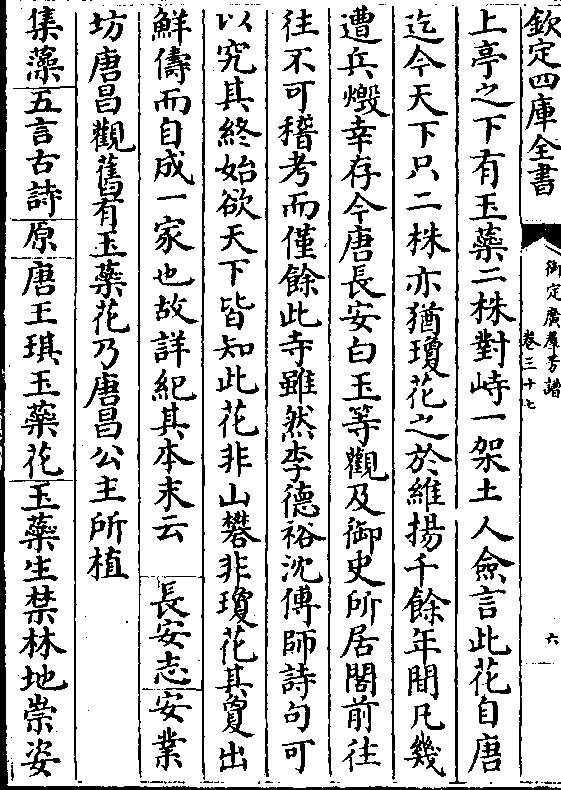 欽定四庫全書
御定廣羣芳譜
卷三十七
六
上亭之下有玉藥二株對峙一架土人僉言此花自唐
迄今天下只二株亦猶瓊花之於維揚千餘年間凡幾
遭兵燬幸存今唐長安白玉等觀及御史所居閣前往
往不可稽考而僅餘此寺雖然李德裕沈傅師詩句可
以究其終始欲天下皆知此花非山礬非瓊花其敻出
鮮儔而自成一家也故詳紀其本末云 長安志 安業
坊唐昌觀舊有玉藥花乃唐昌公主所植
集藻 五言古詩 原 唐王琪玉藥花 玉藥生禁林地崇姿